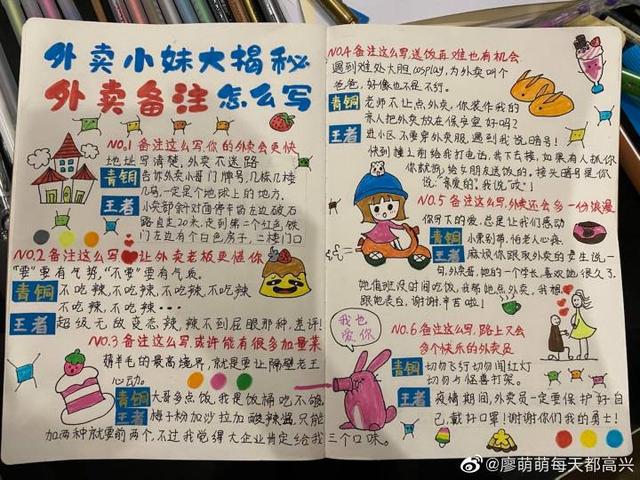 外卖小妹大揭秘
外卖备注怎么写
NO.1 备注这么写,你的外卖会更快
地址写清楚,外卖不迷路
青铜 告诉外卖小哥门牌号,几栋几楼
几号,一定是个地球上的地方。
王者 小卖部余叶对面停车场左边破石
路直走20米,走到第二个红色铁
门左边有个白色房子,二楼门口
NO.2 备注这么写 让外卖老板更懂你
“要”要有气势,“不要”要有气质。
青铜 不吃辣,不吃辣,不吃辣,不吃辣
不吃辣,不吃辣···
王者 超级无敌变态辣,辣不到屁眼那种,差评!
NO.3 备注这么写,或许能有很多加量菜
薅羊毛的最高境界,就是要让隔壁老王
心动。
青铜 大哥多点饭,我是饭桶吃不够
王者 梅子粉加沙拉加酸辣酱,只能
加两种就要前两个,不过我觉得大企业肯定给我
三个口味。
NO.4 备注这么写,送饭再难也有机会
遇到难处大胆cosplay,为外卖叫个
爸爸,好像也不是不行。
青铜 老师不让点外卖,你装作我的
亲人把外卖放在保安室好吗?
王者 进小区不要穿外卖服,遇到我说暗号!
快到撞上前给我打电话,我下去接,如果有人抓你
你就说,给女朋友送饭的。接头暗号是你
说“亲爱的”,我说“哎”!
NO.5 备注这么写,外卖还会多一份浪漫
你写下的爱,总是让我们感动
青铜 小票别带,怕老人心疼。
王者 麻烦你跟取外卖的女生说一
句,外卖哥,她的一个学长,喜欢她很久了。
她值班没时间吃饭,我帮她点外卖,我想
跟她表白,谢谢,辛苦啦!
我也
爱你
NO.6 备注这么写,路上又会
多个快乐的外卖员
青铜 切勿飞行 切勿闯红灯
切勿与怪兽打架。
王者 疫情期间,外卖员一定要保护好自
己,戴好口罩!谢谢你们我的勇士!
@廖萌萌每天都高兴